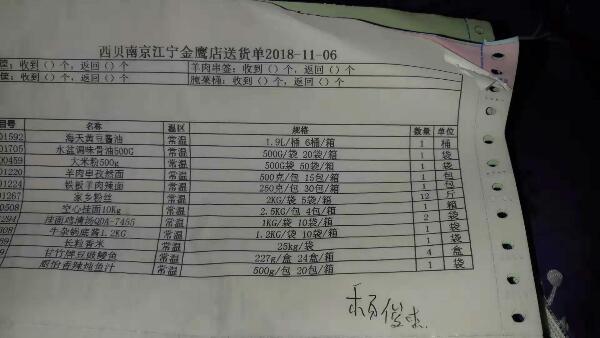 西贝南京江宁金鹰店送货单2018-11-06
筐：收到（）个，返回（）个 羊肉串签：收到（）个，返回（）个
筐：收到（）个，返回（）个 腌菜桶：收到（）个，返回（）个
目号 名称 温区 规格 数量 单位
01592 海天黄豆酱油 常温 1.9L/桶 6桶/箱 1 桶
01705 永益调味骨油500G 常温 500G/袋 20袋/箱 1 袋
00459 大米粉500g 常温 500G袋 50袋/箱 1 袋
01220 羊肉串孜然面 常温 500克/包 15包/箱 1 包
01224 铁板羊肉辣面 常温 250克/包 30包/箱 1 包
01267 家乡粉丝 常温 2KG/袋 5袋/箱 12 斤
00508 空心挂面10Kg 常温 2.5KG/包 4包/箱 1 箱
294 挂面鸡清汤QDA-7455 常温 1KG/袋 10袋/箱 2 袋
308 牛杂锅底酱1.2KG 常温 1.2KG/袋 10袋/箱 1 袋
89 长粒香米 常温 25kg/袋 1 袋
9 甘竹牌豆豉鲮鱼 常温 227g/盒 24盒/箱 4 盒
香辣炖鱼汁 常温 500g/包 20包/箱 1 袋